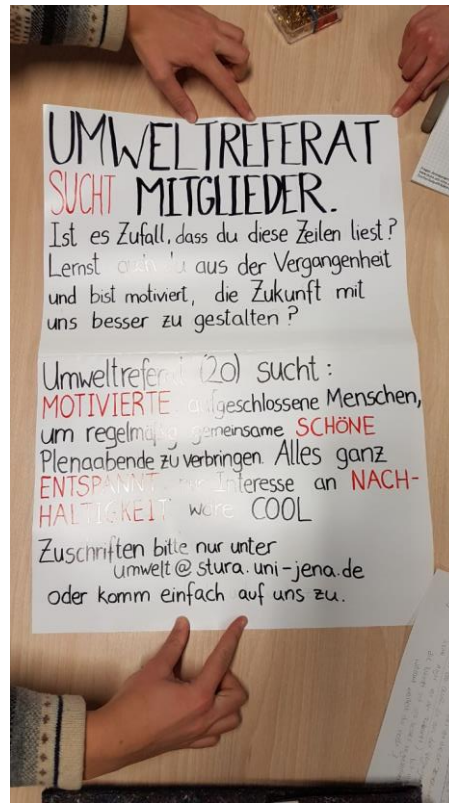 UMWELTREFERAT
SUCHT MITGLIEDER.
Ist es Zufall, dass du diese Zeilen liest?
Lernst auch du aus der Vergangenheit
und bist motiviert, die Zukunft mit
uns besser zu gestalten?
Umweltreferat (20) sucht:
MOTIVIERTE aufgeschlossene Menschen,
um regelmäßig gemeinsame SCHÖNE
Plenaabende zu verbringen. Alles ganz
ENTSPANNT, nur Interesse an NACH-
HALTIGKEIT wäre COOL
Zuschriften bitte nur unter
umwelt@stura.uni-jena.de
oder komm einfach auf uns zu.